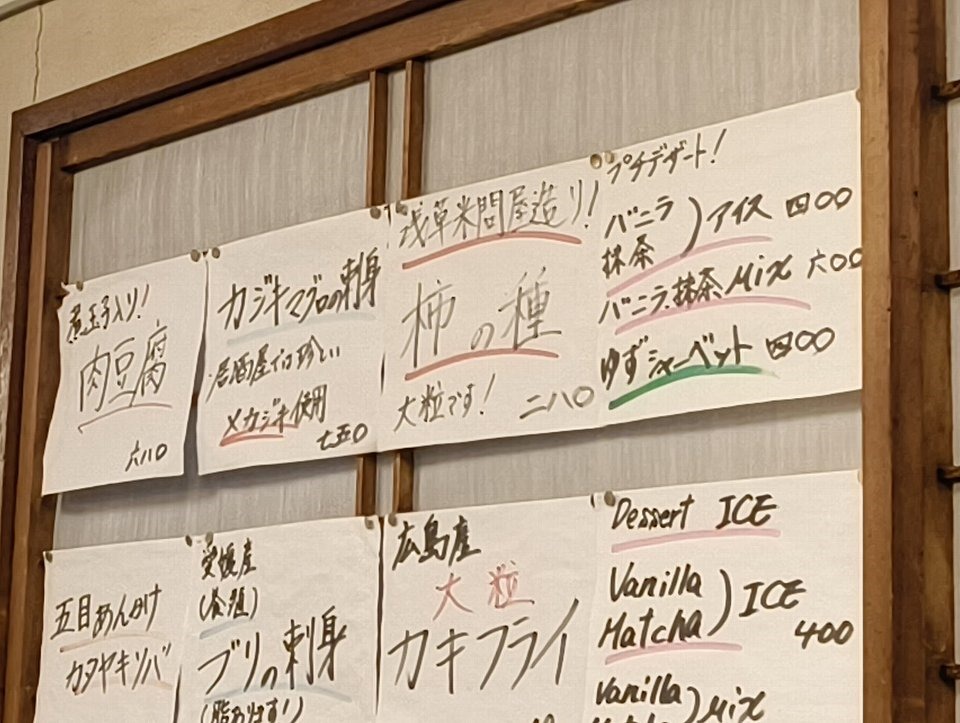 煮玉子入り!
肉豆腐
六八〇
カジキマグロの刺身
居酒屋では珍しい
メカジキ使用
七五〇
浅草米問屋造り!
柿の種
大粒です!
二八〇
プチデザート!
バニラ
抹茶
)アイス 四〇〇
バニラ、抹茶Mix 六〇〇
ゆずシャーベット 四〇〇
五目あんかけ
カタヤキソバ
愛媛産
(養殖)
ブリの刺身
広島産
大粒
カキフライ
Dessert ICE
Vanilla
Matcha
)ICE
400
Vanilla
)Mix